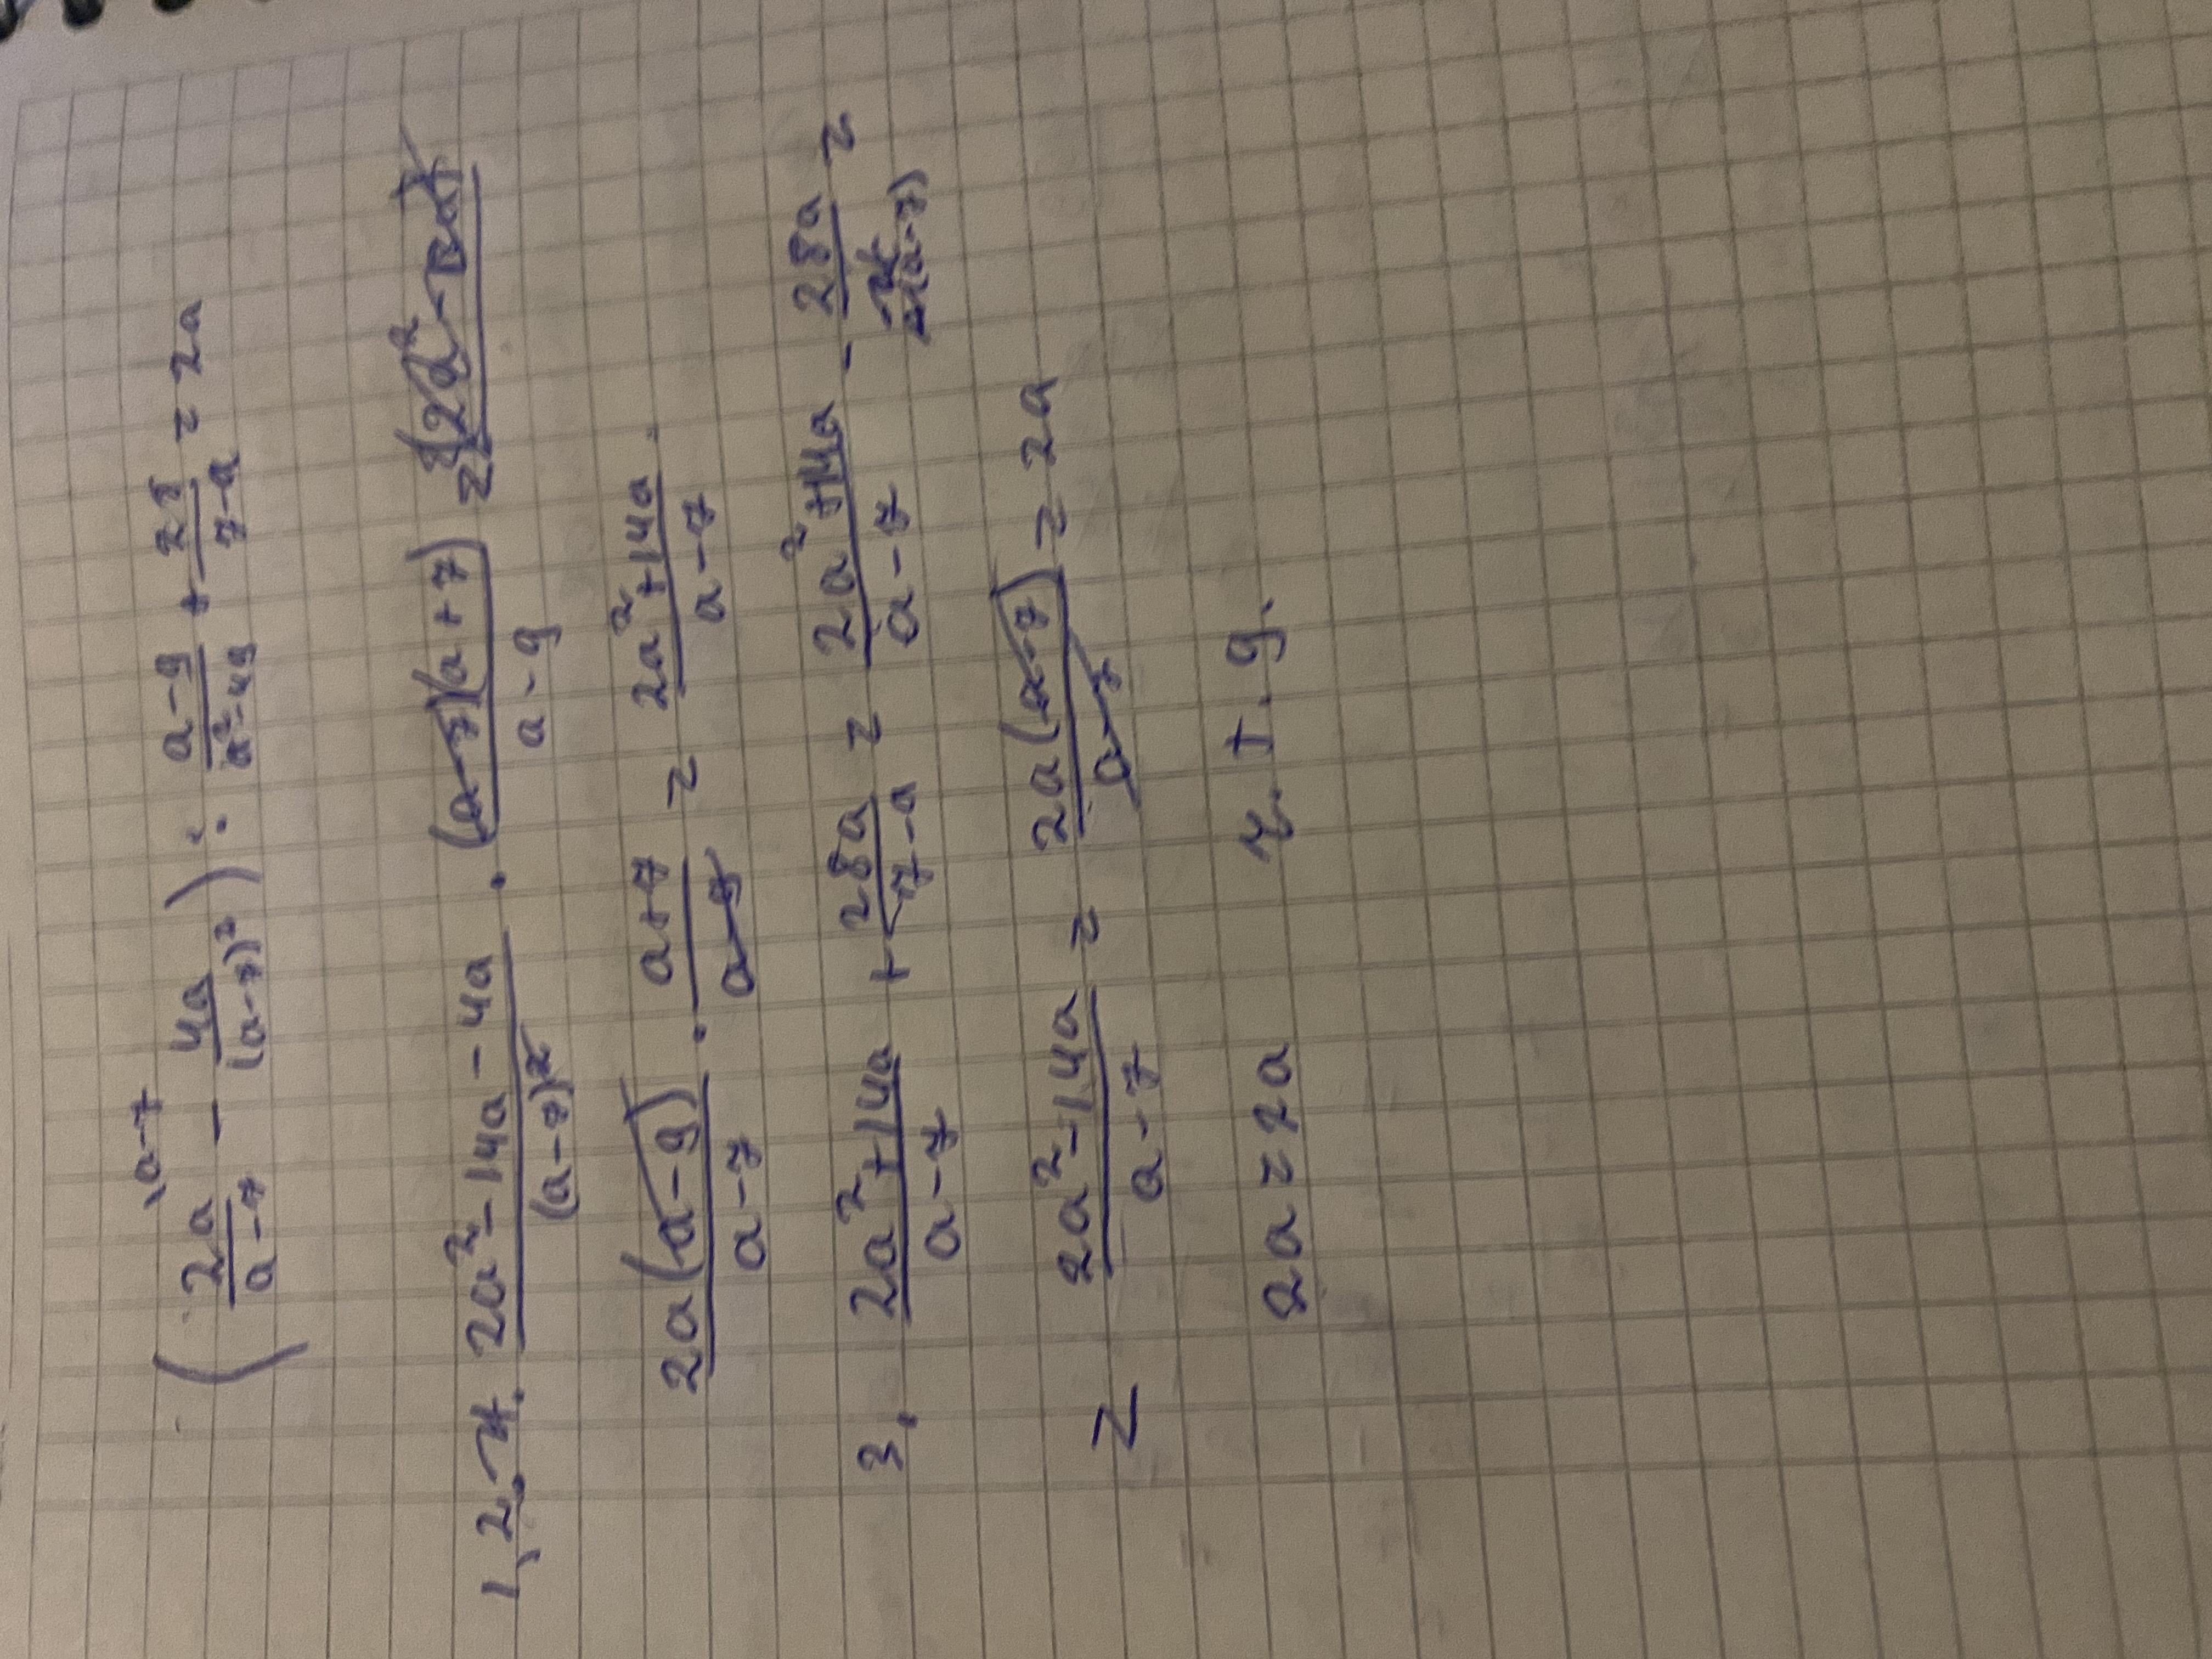 ( 2a/(a-7) \a-7 - 4a/(a-7)² ) : (a-9)/(a²-49) + 28/(7-a) = 2a
1, 2. (2a²-14a-4a)/(a-7)² · (a-7)(a+7)/(a-9) =
2a(a-9)/(a-7) · (a+7)/(a-9) = (2a²+14a)/(a-7)
3. (2a²+14a)/(a-7) + 28a/(7-a) = (2a²+14a)/(a-7) - 28a/(a-7) =
= (2a²-14a)/(a-7) = 2a(a-7)/(a-7) = 2a
2a = 2a ч.т.д.